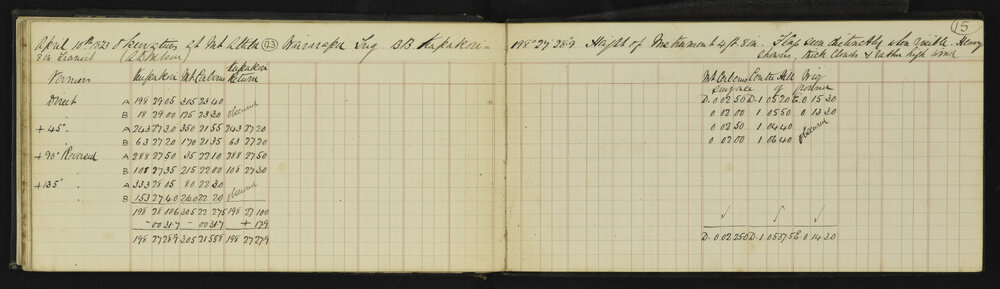 April 10th 1923 Observations at Mt Attila (23) Wairarapa Trig S.B. Kapakori- 198° 27' 28·9 Height of Instrument 4 ft 8 in. Flag seen distinctly when visible. Heavy
8in Transit showers, thick clouds & rather high wind
15
Verniers Kapakori Mt Cerberus Kapakori Return
Mt Cerberus Centre Hole Trig
surface of ground
Direct A 198 29 05 305 23 40 obscured D. 0 02 50 D. 1 05 20 E. 0 15 30
B 18 29 00 125 23 30 0 02 00 1 05 50 0 13 30
+ 45° A 243 27 30 350 21 55 243 27 20 0 02 50 1 04 40 obscured
B 63 27 20 170 21 35 63 27 20 0 02 00 1 06 40
+ 90° Reversed A 288 27 50 35 22 10 288 27 50
B 108 27 35 215 22 00 108 27 30
+ 135° A 333 28 05 80 22 30 obscured
B 153 27 40 260 22 20
198 28 006 305 22 275 198 27 100
- 0031·7 - 0031·7 + 17·9
198 27 28·9 305 21 55·8 198 27 27·9 D. 0 02 25 0 D. 1 05 37·5 E. 0 14 30